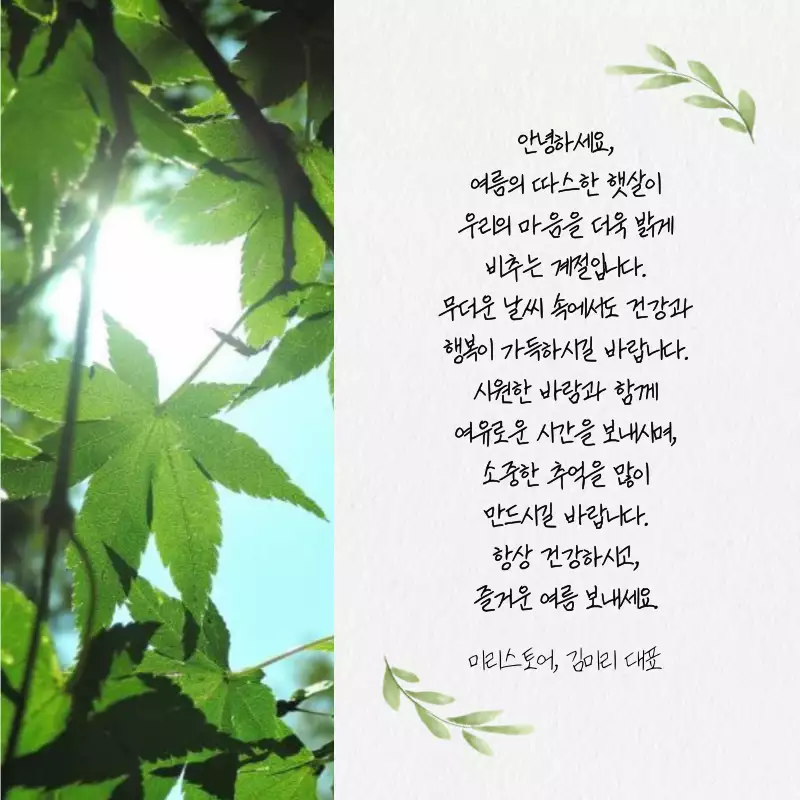 안녕하세요,
여름의 따스한 햇살이
우리의 마음을 더욱 밝게
비추는 계절입니다.
무더운 날씨 속에서도 건강과
행복이 가득하시길 바랍니다.
시원한 바람과 함께
여유로운 시간을 보내시며,
소중한 추억을 많이
만드시길 바랍니다.
항상 건강하시고,
즐거운 여름 보내세요.
미리스토어, 김미리 대표